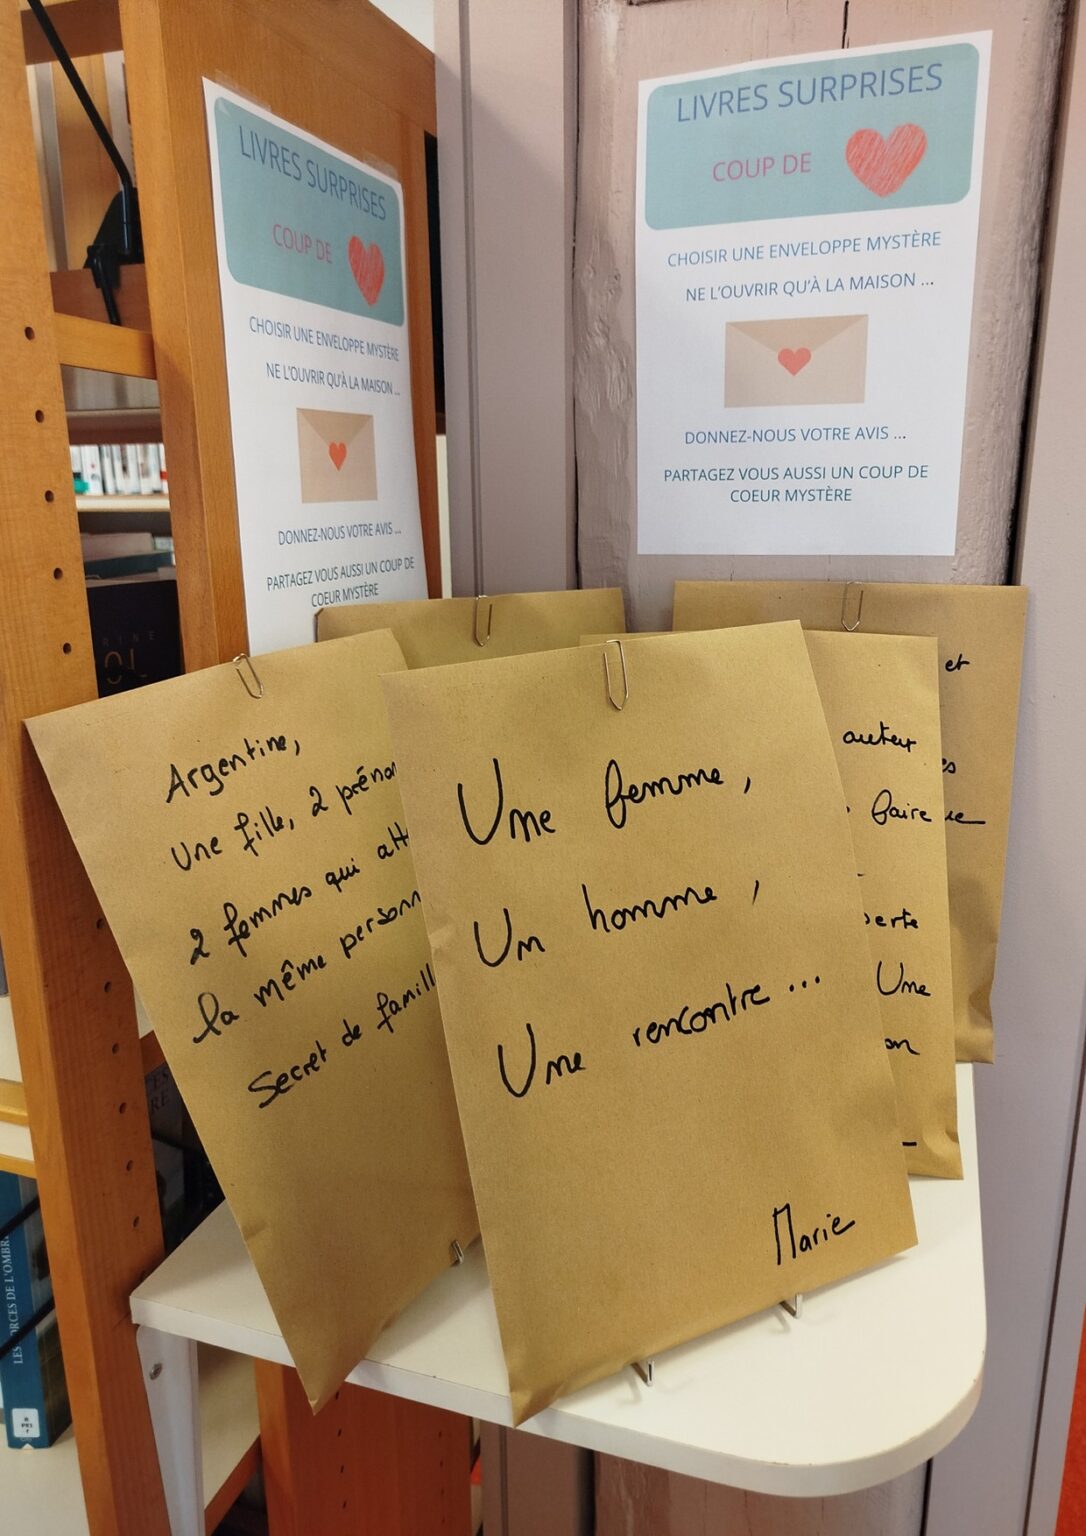 LIVRES SURPRISES
COUP DE
CHOISIR UNE ENVELOPPE MYSTÈRE
NE L'OUVRIR QU'À LA MAISON ...
DONNEZ-NOUS VOTRE AVIS ...
PARTAGEZ VOUS AUSSI UN COUP DE
COEUR MYSTÈRE
LIVRES SURPRISES
COUP DE
CHOISIR UNE ENVELOPPE MYSTÈRE
NE L'OUVRIR QU'À LA MAISON ...
DONNEZ-NOUS VOTRE AVIS ...
PARTAGEZ VOUS AUSSI UN COUP DE
COEUR MYSTÈRE
Argentine,
une fille, 2
2 femmes qui
la même
Secret de
Une femme,
Un homme,
Une rencontre...
Marie
auteur
faire
Une
et